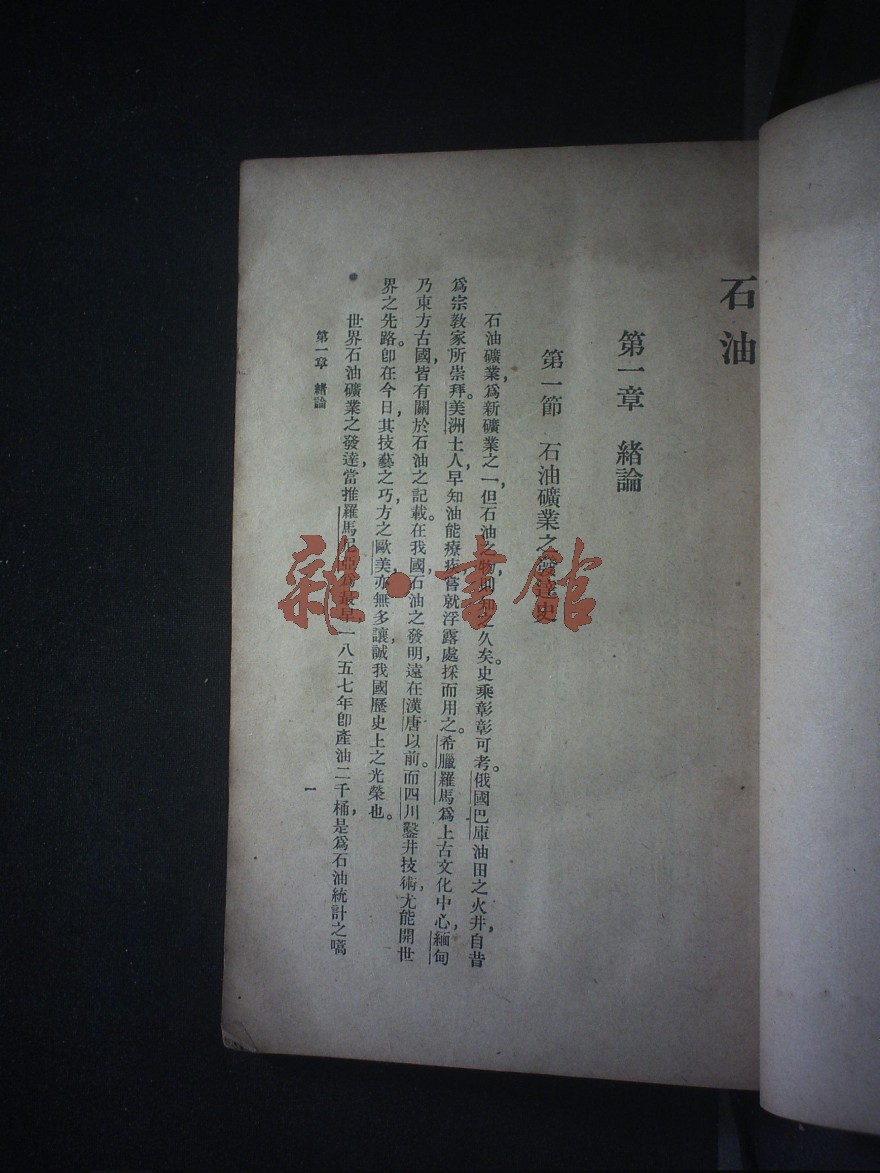 石油
第一章　緒論
第一節　石油礦業之發達史
石油礦業，爲新礦業之一，但石油之物則知之久矣。史乘彰彰可考。俄國巴庫油田之火井，自昔
爲宗教家所崇拜。美洲土人，早知油能療疾，嘗就浮露處採而用之。希臘羅馬爲上古文化中心，緬甸
乃東方古國，皆有關於石油之記載。在我國，石油之發明，遠在漢唐以前。而四川鑿井技術，尤能開世
界之先路。卽在今日，其技藝之巧，方之歐美，亦無多讓，誠我國歷史上之光榮也。
世界石油礦業之發達，當推羅馬尼亞爲最早，一八五七年卽產油二千桶，是爲石油統計之嚆
第一章　緒論
一
雜·書館